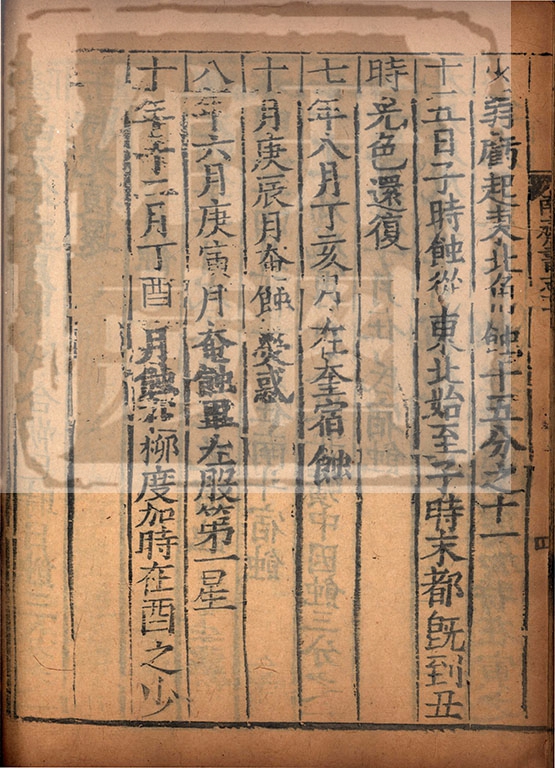 弱虧起東北角蝕十五分之十一
十五日子時蝕從東北始至子時末都既到丑
時光色還復
七年八月丁亥月在奎宿蝕
十月庚辰月奄蝕熒惑
八年六月庚寅月奄蝕畢左股第一星
十年十二月丁酉月蝕在柳度加時在酉之少